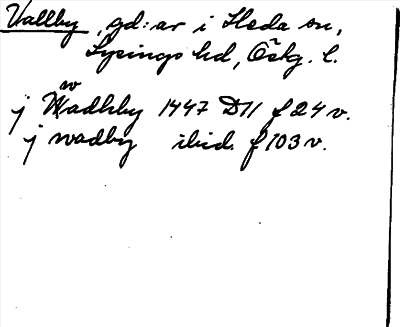 Vallby, gd:ar i Heda sn,
Lysings hd, Östg. l.
w
j Wadhby 1447 D11 f 24 v.
j wadby ibid. f 103 v.